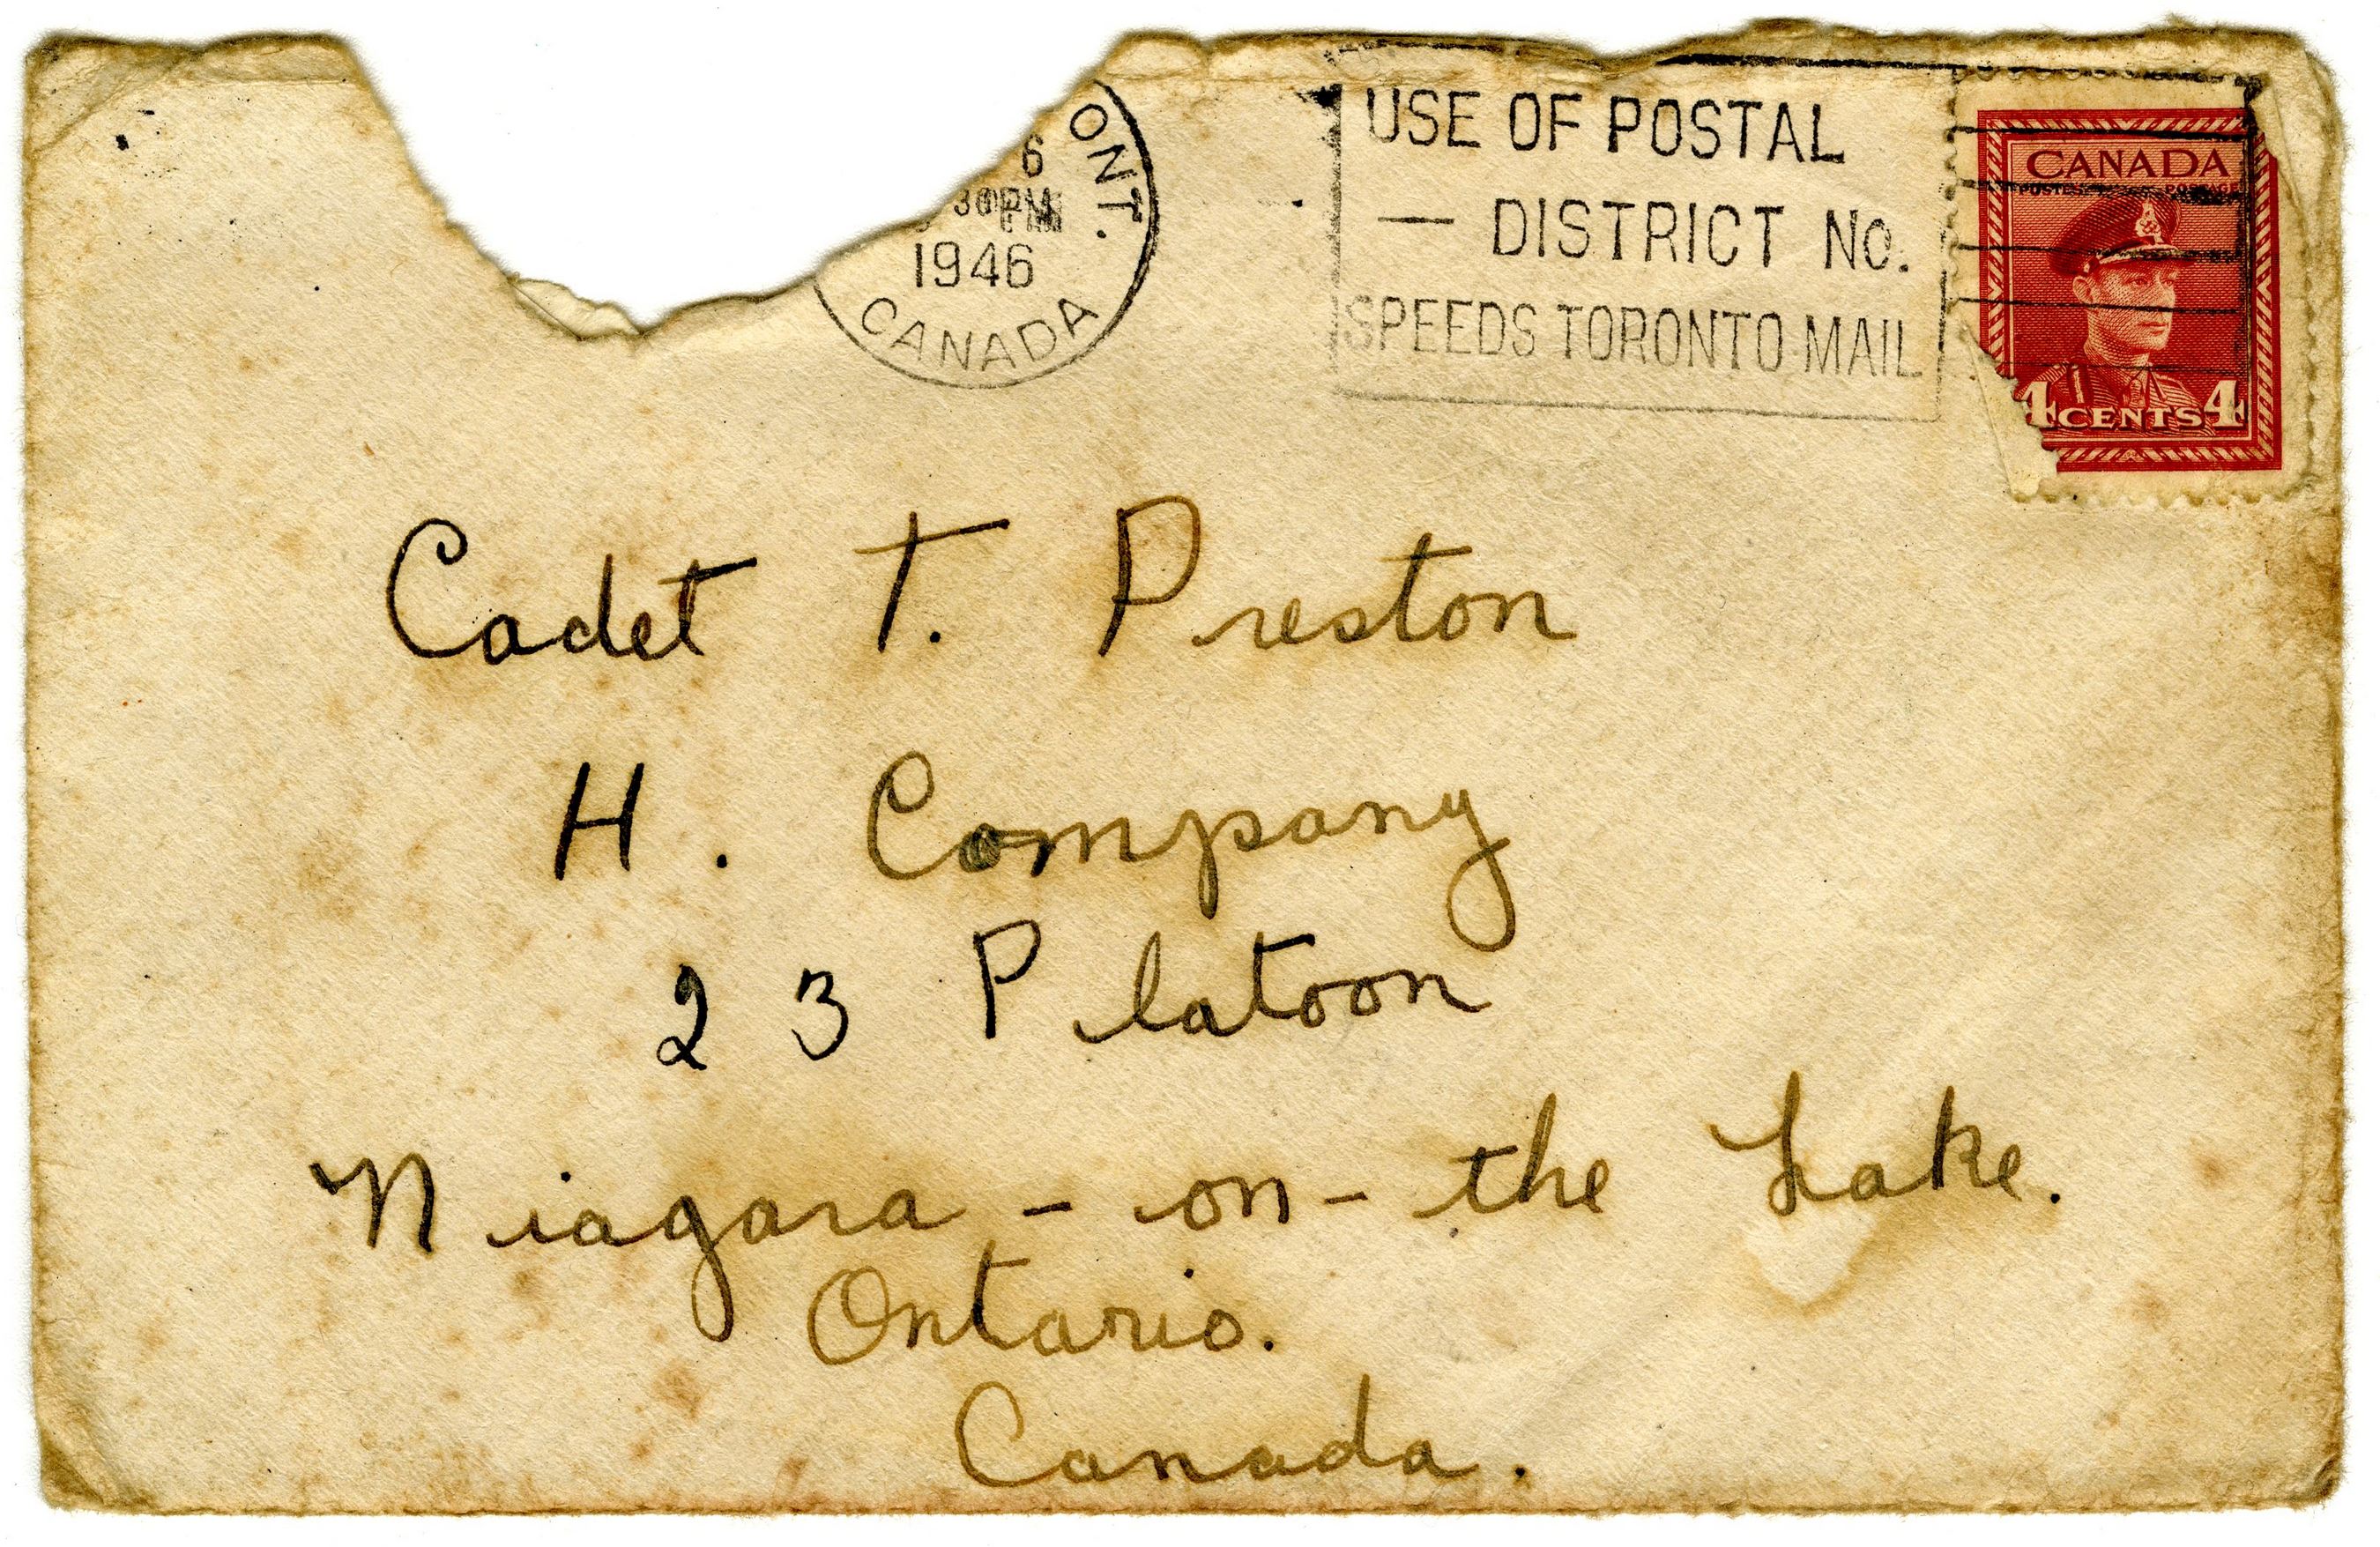 ONT.
6
30 PM
1946
CANADA
USE OF POSTAL
— DISTRICT No.
SPEEDS TORONTO MAIL
CANADA
POSTES POSTAGE
4 CENTS 4
Cadet T. Preston
H. Company
23 Platoon
Niagara - on - the Lake.
Ontario.
Canada.